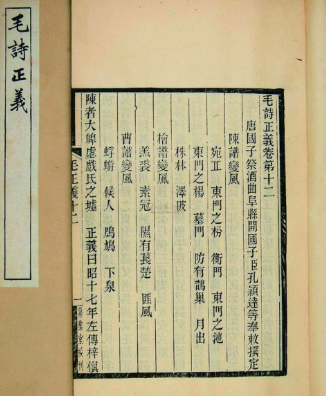 毛詩正義
毛詩正義卷第十二
唐國子祭酒曲阜縣開國子臣孔穎達等奉敕撰定
陳譜變風
宛丘 東門之枌 衡門 東門之池
東門之楊 墓門 防有鵲巢 月出
株林 澤陂
檜譜變風
羔裘 素冠 隰有萇楚 匪風
曹譜變風
蜉蝣 候人 鳲鳩 下泉
陳者大皥虙戲氏之墟 正義曰昭十七年左傳梓慎
毛正義十二
一